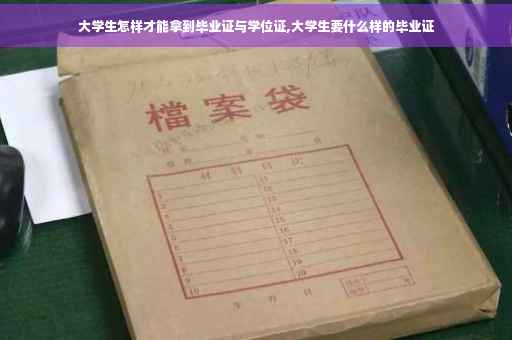 大学生怎样才能拿到毕业证与学位证,大学生要什么样的毕业证
檔案袋
材料目次
1 11
2 12
3 13
4 14
5 15
6 16
7 17
8 18
9 19
10 20
年 月 日